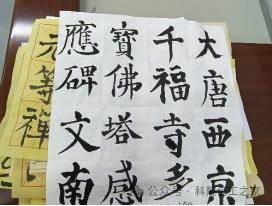 大唐西京
千福寺多
寶佛塔感
應碑文南
等禪
公众号